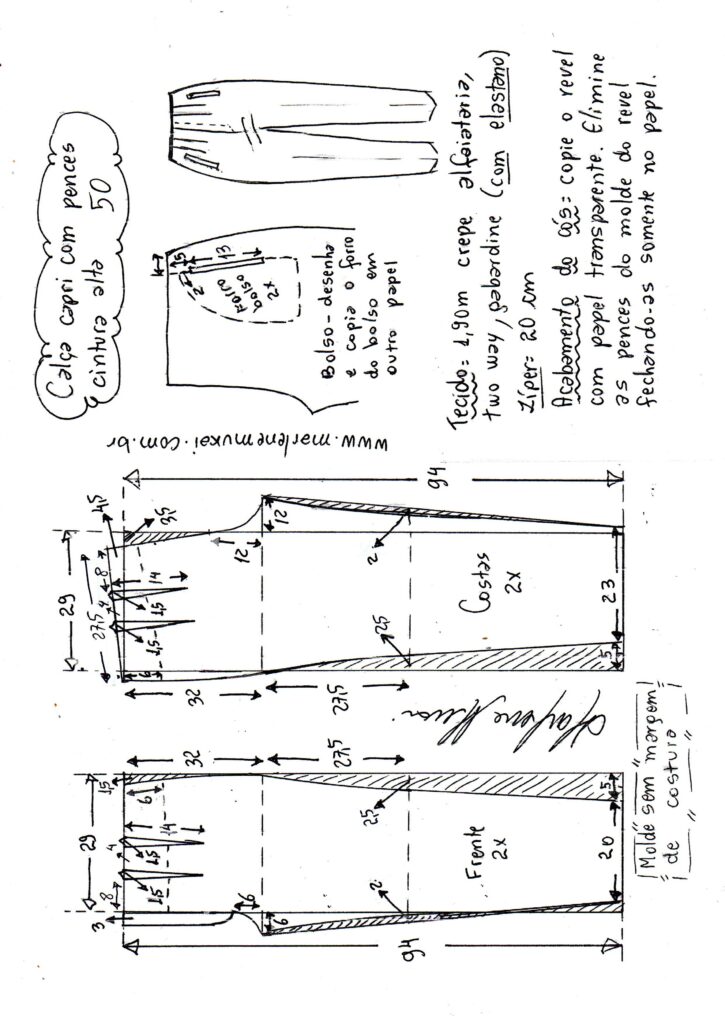 Calça capri com pences
cintura alta 50
1,5
13
2
Forro
bolso
2x
Bolso - desenha
e copia o forro
do bolso em
outro papel
Tecido = 1,90m crepe alfaiataria,
two way, gabardine (com elastano)
Zíper = 20 cm
Acabamento do cós = copie o revel
com papel transparente. Elimine
as pences do molde do revel
fechando-as somente no papel.
www.marlenemukai.com.br
94
29
27,5
4,5
3,5
8
4
14
1,5
1,5
6
12
12
32
27,5
2
2,5
Costas
2x
23
5
94
29
32
27,5
1,5
6
14
4
1,5
1,5
8
3
6
6
2,5
2
Frente
2x
20
5
Molde sem margem
de costura